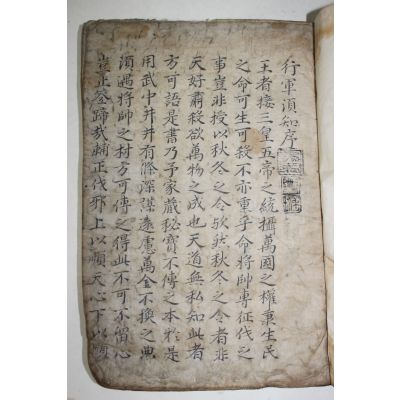 行軍須知序
王者接三皇五帝之統攝萬國之權稟生民
之命可生可殺不亦重乎命將帥專征伐之
事豈非授以秋冬之令欤然秋冬之令者非
天好肅殺欲萬物之成也天道無私知此者
方可語是書乃予家藏秘寶不傳之本於是
用武中井井有條深謀遠慮萬金不換之典
須遇將帥之材方可傳之得此不可不留心
豈正蹄哉輔正伐邪上以順天心下以順